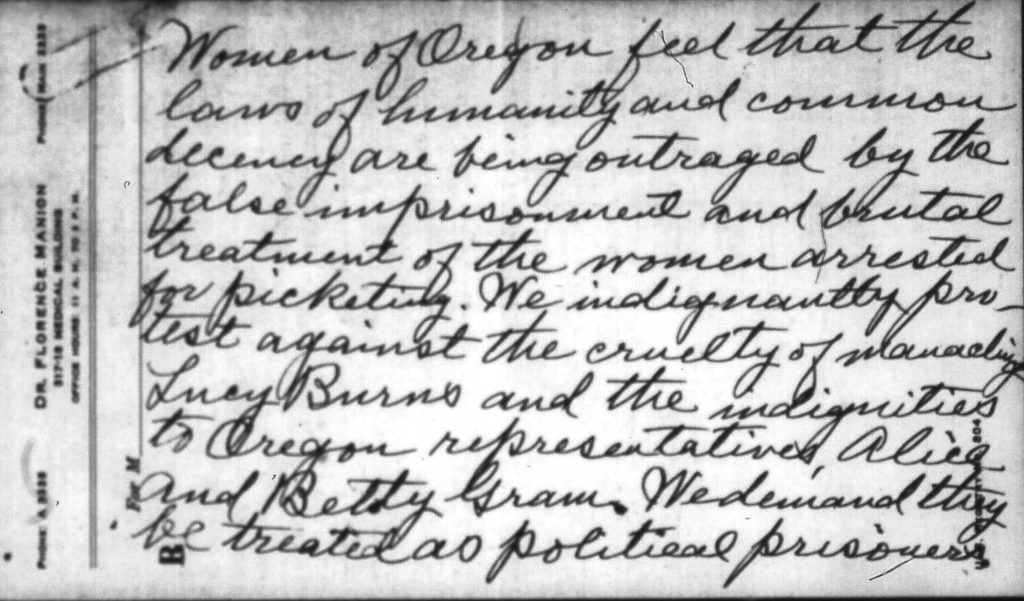 Women of Oregon feel that the
laws of humanity and common
decency are being outraged by the
false imprisonment and brutal
treatment of the women arrested
for picketing. We indignantly pro-
test against the cruelty of manacling
Lucy Burns and the indignities
to Oregon representatives, Alice
and Betty Gram. We demand they
be treated as political prisoners
DR. FLORENCE MANION
517-18 MEDICAL BUILDING
OFFICE HOURS: 11 A.M. TO 5 P.M.
For M
B